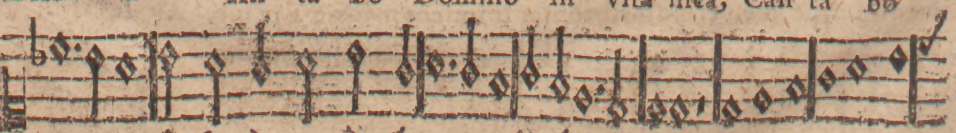 ta bo Domino in vita mea, Can ta bo